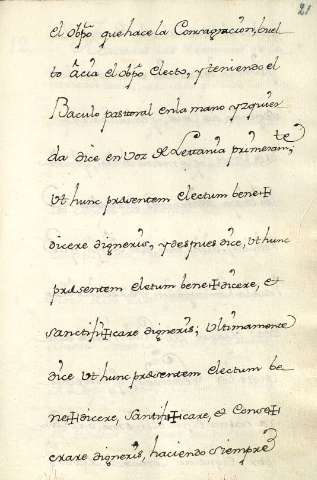 21
el obpo que hace la Consagracion, buel
to àcia el obpo electo, y teniendo el
Baculo pastoral en la mano yzquier
da dice en voz de Letania primeramte
Vt hunc præsentem electum bene✠
dicere digneris, y despues dice, ut hunc
præsentem eletum bene✠dicere, et
sanctifi✠care digneris; ultimamente
dice ut hunc præsentem electum be
ne✠dicere, sanctifi✠care, et conse✠
crare digneris, haciendo siempre